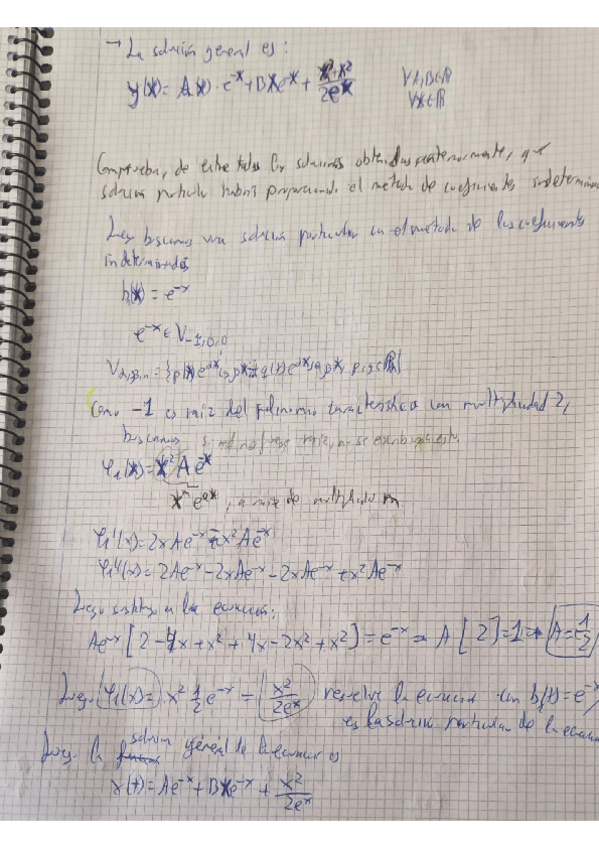 → La solución general es:
y(x) = A(x)·e^-x + Bxe^-x + x²/2e^x ∀A,B∈ℝ ∀x∈ℝ
Comprueba, de entre todas las soluciones obtenidas anteriormente, que
solución particular habría proporcionado el método de coeficientes indetermin
Luego buscamos una solución particular con el método de los coeficientes
indeterminados
b(x) = e^-x
e^-x ∈ V_-1,0,0
Como -1 es raíz del polinomio característico con multiplicidad 2,
buscamos si no fuese raíz, no se
φ₁(x) = x² A e^-x
x^m e^ax, a raíz de multiplicidad m.
φ₁'(x) = 2xAe^-x - x²Ae^-x
φ₁''(x) = 2Ae^-x - 2xAe^-x - 2xAe^-x + x²Ae^-x
Luego sustituyo en la ecuación:
Ae^-x [2 - 4x + x² + 4x - 2x² + x²] = e^-x ⇒ A[2] = 1 ⇒ A = 1/2
Luego φ₁(x) = x² 1/2 e^-x = x²/2e^x resuelve la ecuación con b(x) = e^-x
es la solución particular de la ecuac
Luego la solución general de la ecuación es
x(t) = Ae^-x + Bxe^-x + x²/2e^x